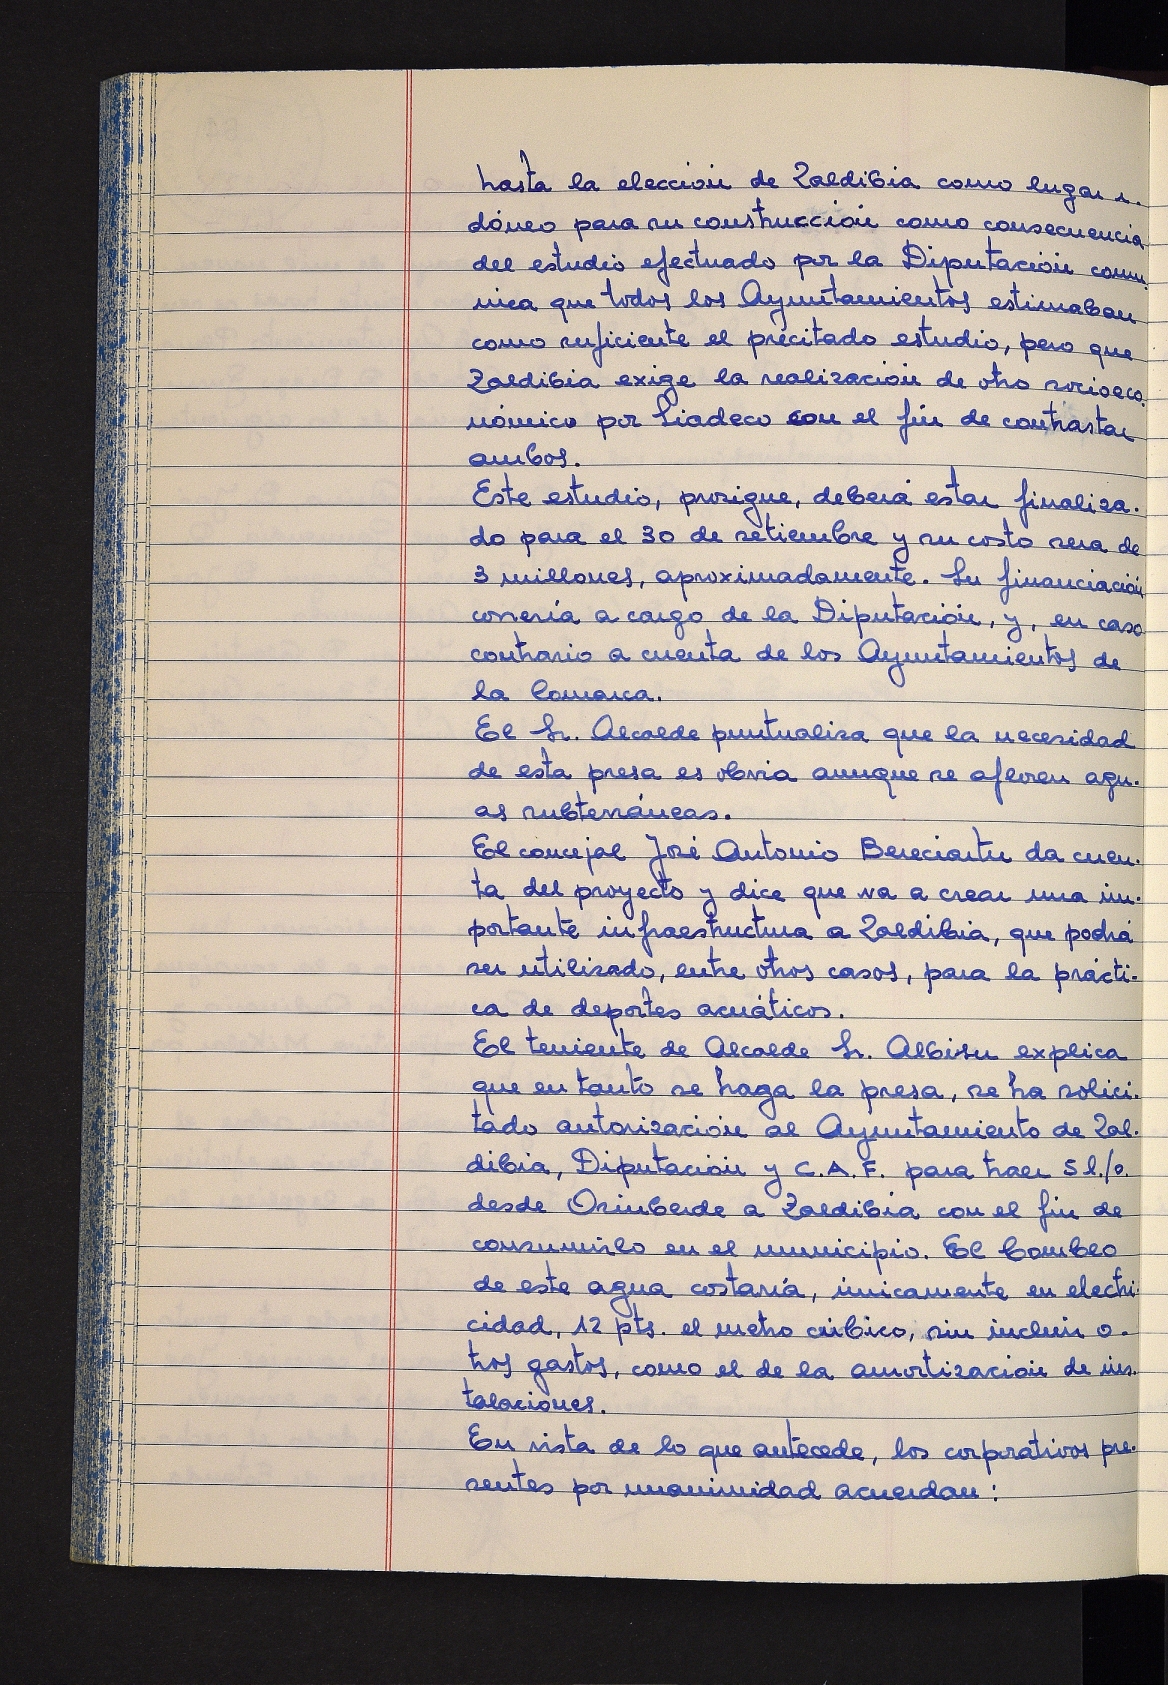 hasta la elección de Zaldibia como lugar i-
dóneo para su construcción como consecuencia
del estudio efectuado por la Diputación comu-
nica que todos los Ayuntamientos estimaban
como suficiente el precitado estudio, pero que
Zaldibia exige la realización de otro socioeco-
nómico por Siadeco con el fin de contrastar
ambos.
Este estudio, prosigue, deberá estar finaliza-
do para el 30 de setiembre y su costo sera de
3 millones, aproximadamente. Su financiación
correría a cargo de la Diputación, y, en caso
contrario a cuenta de los Ayuntamientos de
la Comarca.
El Sr. Alcalde puntualiza que la necesidad
de esta presa es obvia aunque se afloren agu-
as subterráneas.
El concejal José Antonio Bereciartu da cuen-
ta del proyecto y dice que va a crear una im-
portante infraestructura a Zaldibia, que podrá
ser utilizado, entre otros casos, para la prácti-
ca de deportes acuáticos.
El teniente de Alcalde Sr. Albisu explica
que en tanto se haga la presa, se ha solici-
tado autorización al Ayuntamiento de Zal-
dibia, Diputación y C.A.F. para traer 5 l./s.
desde Osinberde a Zaldibia con el fin de
consumirlo en el municipio. El bombeo
de este agua costaría, únicamente en electri-
cidad, 12 pts. el metro cúbico, sin incluir o-
tros gastos, como el de la amortización de ins-
talaciones.
En vista de lo que antecede, los corporativos pre-
sentes por unanimidad acuerdan: